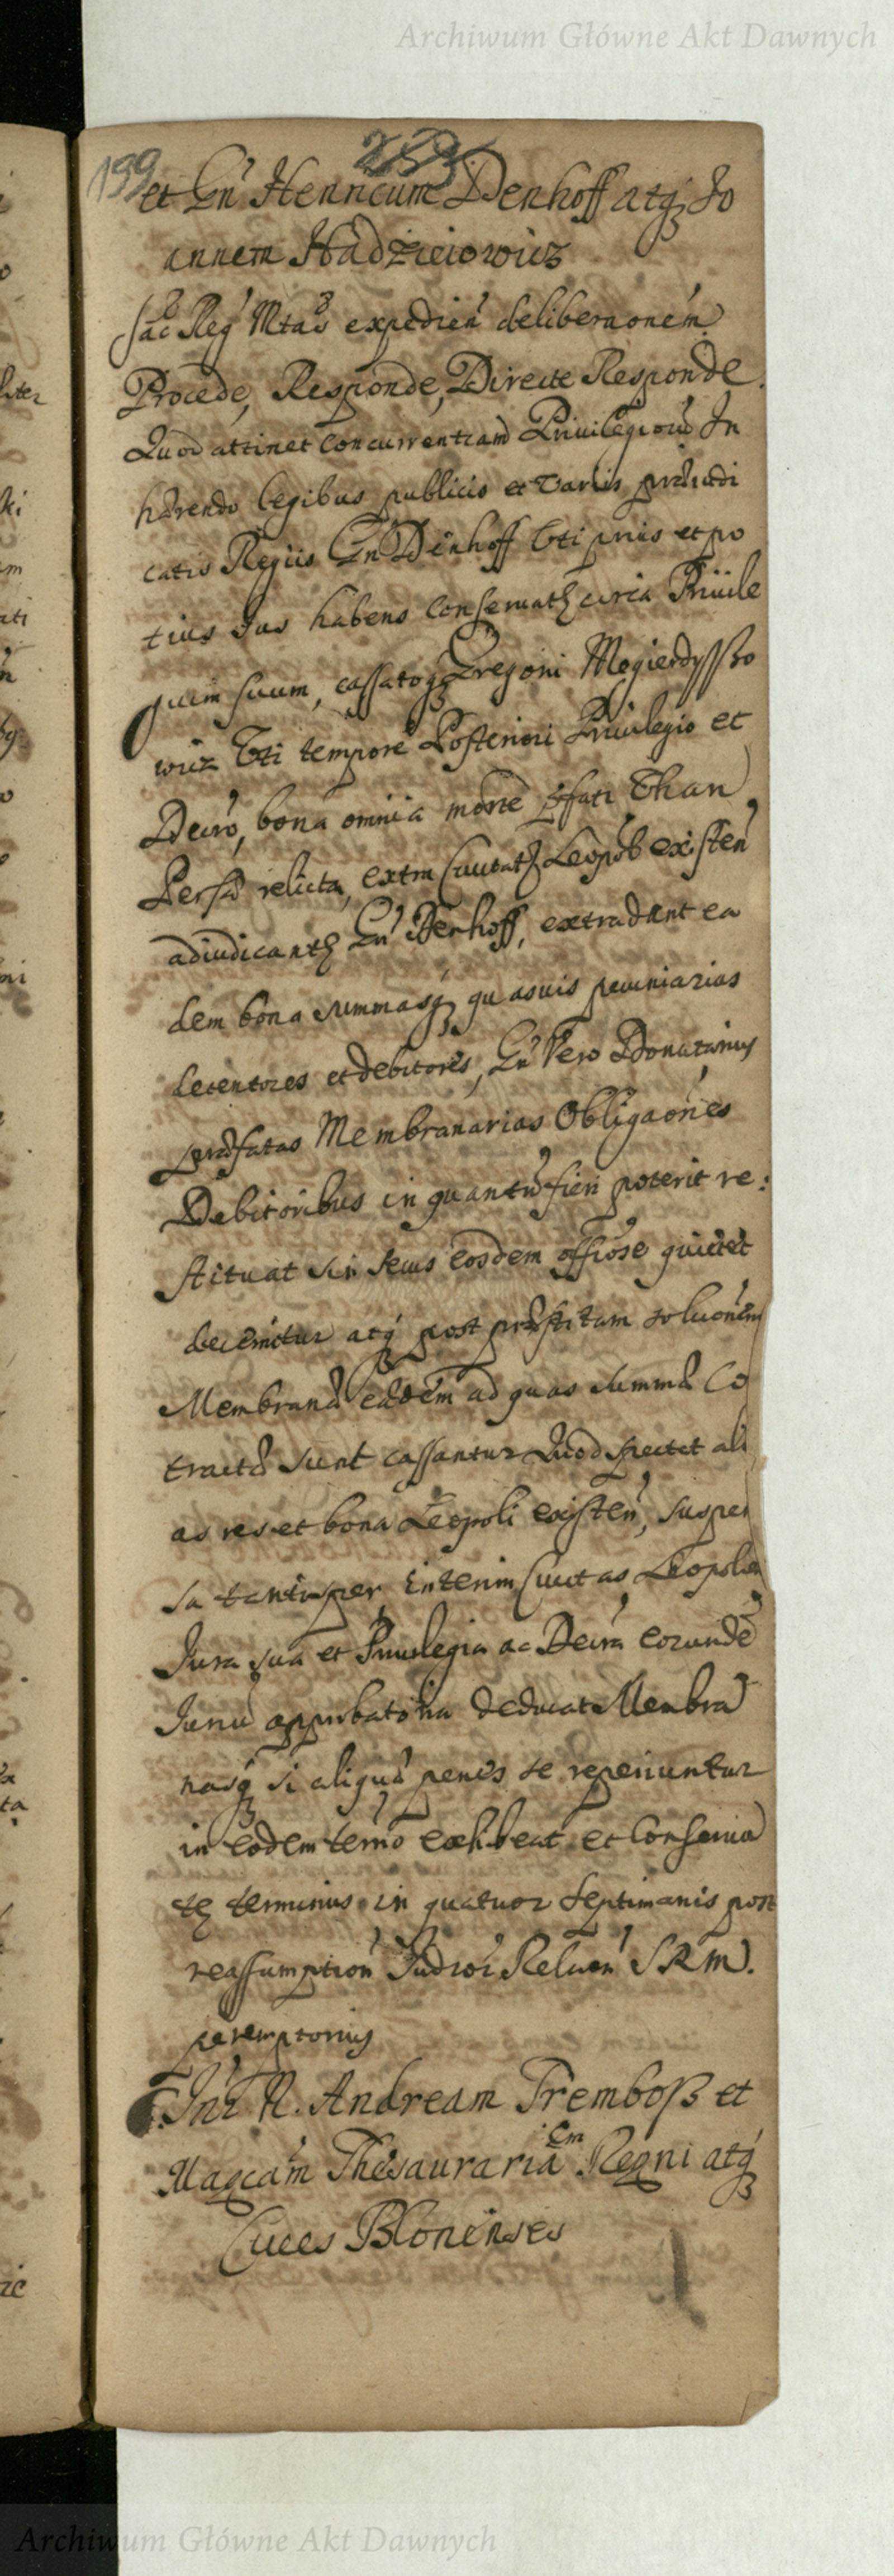 Archiwum Główne Akt Dawnych
199 253
et Gn̄ Henricum Denhoff atq̨ Jo
annem Hadziewowicz
Sac Reg Mtas expedien deliberaonem
Procede, Responde, Directe Responde.
Quod attinet concurrentiam Privilegiorū In
hærendo legibus publicis et variis præiudi
catis Regiis Gn̄ Denhoff Vti prius et po
tius Jus habens conservatꝫ circa Privile
gium suum, cassatoq̨ Gregorii
wicz Vti tempore Posteriori Privilegio et
Decro, bona omnia morte pfati Than
Persæ relicta, extra Civitatꝫ Leopōb existen
adiudicantꝫ Gn̄ Denhoff, extradant ea
dem bona summasq̨ quasvis pecuniarias
detentores et debitores, Gn̄ Vero Donatarius
præfatas Membranarias Obligaones
Debitoribus in quantū fieri poterit re:
stituat sin secus eosdem offiose quietet
decernitur atq̨ post præstitam soluonem
Membranæ eædem ad quas summæ Co
tractæ sunt cassantur Quod spectet ali
as res et bona Leopoli existen, suspen
sa tantisper, interim Civitas Leopolien
Jura sua et Privilegia ac Decra eorunde
Juriū approbatoria deducat Membra
nasq̨ si aliquæ penes se reperiuntur
in eodem termo exhibeat et Conserva
tꝫ terminus in quatuor septimanis post
reassumption Judior Reluon SRM.
peremptorius
Int N. Andream Trembosz et
Magcam Thesaurariā Em Regni atq̨
Cives Blonenses
Archiwum Główne Akt Dawnych